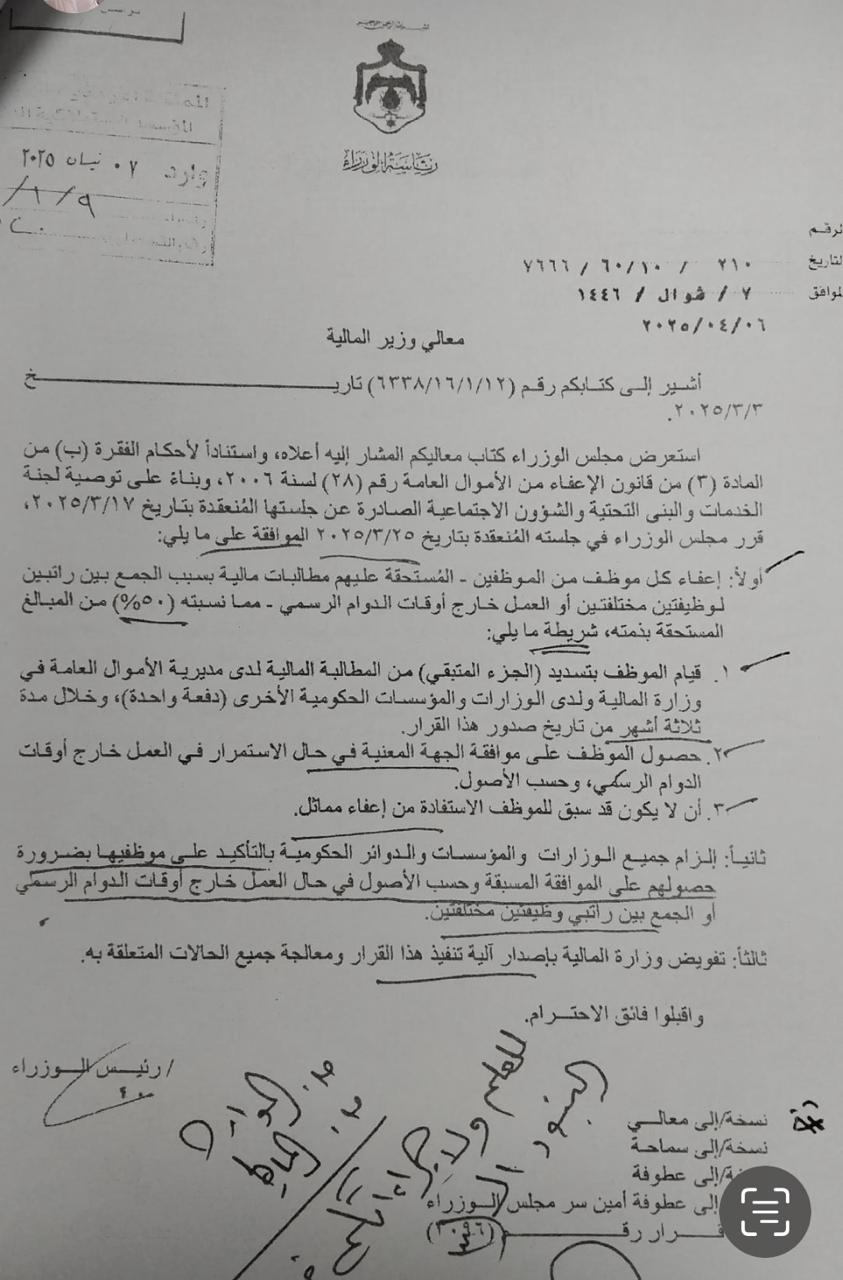 وارد ٠٧ نيسان ٢٠٢٥
٩/١/
رئاسة الوزراء
الرقم
٢١٠ / ٦٠/١٠ / ٧٦٦٦
التاريخ
٧ / شوال / ١٤٤٦
الموافق
٢٠٢٥/٠٤/٠٦
معالي وزير المالية
أشير إلى كتابكم رقم (٦٣٣٨/١٦/١/١٢) تاريـــخ
٢٠٢٥/٣/٣.
استعرض مجلس الوزراء كتاب معاليكم المشار إليه أعلاه، واستناداً لأحكام الفقرة (ب) من
المادة (٣) من قانون الإعفاء من الأموال العامة رقم (٢٨) لسنة ٢٠٠٦، وبناءً على توصية لجنة
الخدمات والبنى التحتية والشؤون الاجتماعية الصادرة عن جلستها المُنعقدة بتاريخ ٢٠٢٥/٣/١٧،
قرر مجلس الوزراء في جلسته المُنعقدة بتاريخ ٢٠٢٥/٣/٢٥ الموافقة على ما يلي:
أولاً: إعفاء كل موظف من الموظفين - المُستحقة عليهم مطالبات مالية بسبب الجمع بين راتبين
لوظيفتين مختلفتين أو العمل خارج أوقات الدوام الرسمي - مما نسبته (٥٠%) من المبالغ
المستحقة بذمته، شريطة ما يلي:
١. قيام الموظف بتسديد (الجزء المتبقي) من المطالبة المالية لدى مديرية الأموال العامة في
وزارة المالية ولدى الوزارات والمؤسسات الحكومية الأخرى (دفعة واحدة)، وخلال مدة
ثلاثة أشهر من تاريخ صدور هذا القرار.
٢. حصول الموظف على موافقة الجهة المعنية في حال الاستمرار في العمل خارج أوقات
الدوام الرسمي، وحسب الأصول.
٣. أن لا يكون قد سبق للموظف الاستفادة من إعفاء مماثل.
ثانياً: إلزام جميع الوزارات والمؤسسات والدوائر الحكومية بالتأكيد على موظفيها بضرورة
حصولهم على الموافقة المسبقة وحسب الأصول في حال العمل خارج أوقات الدوام الرسمي
أو الجمع بين راتبي وظيفتين مختلفتين.
ثالثاً: تفويض وزارة المالية بإصدار آلية تنفيذ هذا القرار ومعالجة جميع الحالات المتعلقة به.
واقبلوا فائق الاحترام.
/ رئيس الوزراء
نسخة/إلى معالي
نسخة/إلى سماحة
إلى عطوفة
إلى عطوفة أمين سر مجلس الوزراء
قرار رقـــم
للعلم ولإجراء